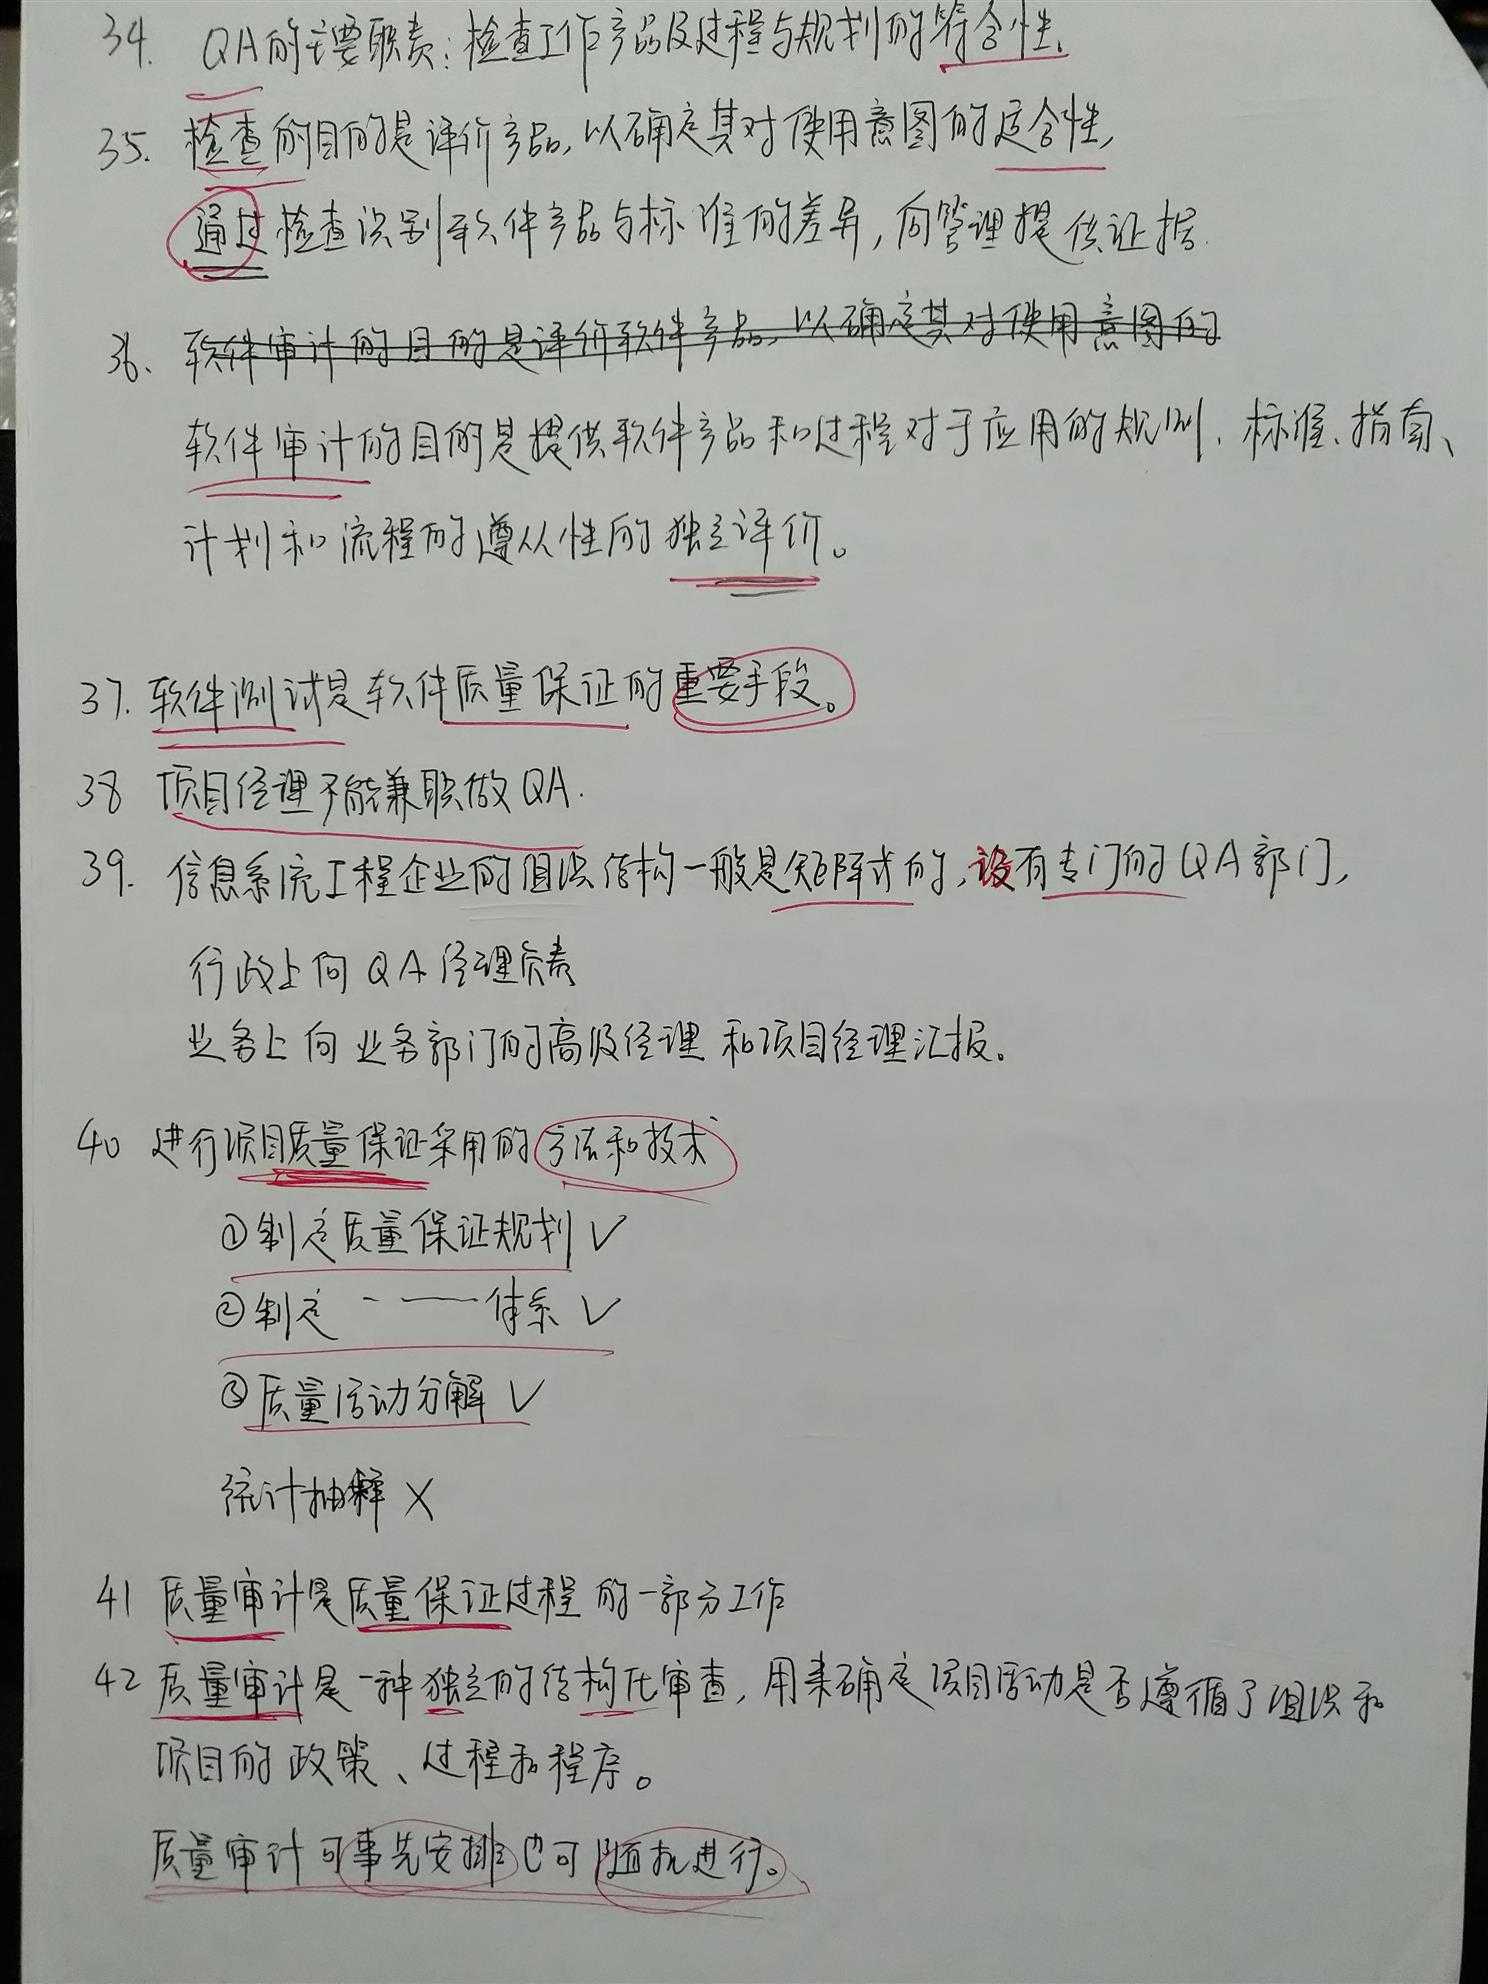 34. QA的主要职责：检查工作产品及过程与规划的符合性.
35. 检查的目的是评价产品,以确定其对使用意图的适合性,
通过检查识别软件产品与标准的差异,向管理提供证据.
36. 软件审计的目的是评价软件产品,以确定其对使用意图的
软件审计的目的是提供软件产品和过程对于应用的规则、标准、指南、
计划和流程的遵从性的独立评价。
37. 软件测试是软件质量保证的重要手段。
38 项目经理不能兼职做QA.
39. 信息系统工程企业的组织结构一般是矩阵式的,设有专门的QA部门,
行政上向QA经理负责
业务上向业务部门的高级经理和项目经理汇报。
40 进行项目质量保证采用的方法和技术
①制定质量保证规划 ✓
②制定 - —— 体系 ✓
③质量活动分解 ✓
统计抽样 ×
41 质量审计是质量保证过程的一部分工作
42 质量审计是一种独立的结构化审查,用来确定项目活动是否遵循了组织和
项目的政策、过程和程序。
质量审计可事先安排也可随机进行。